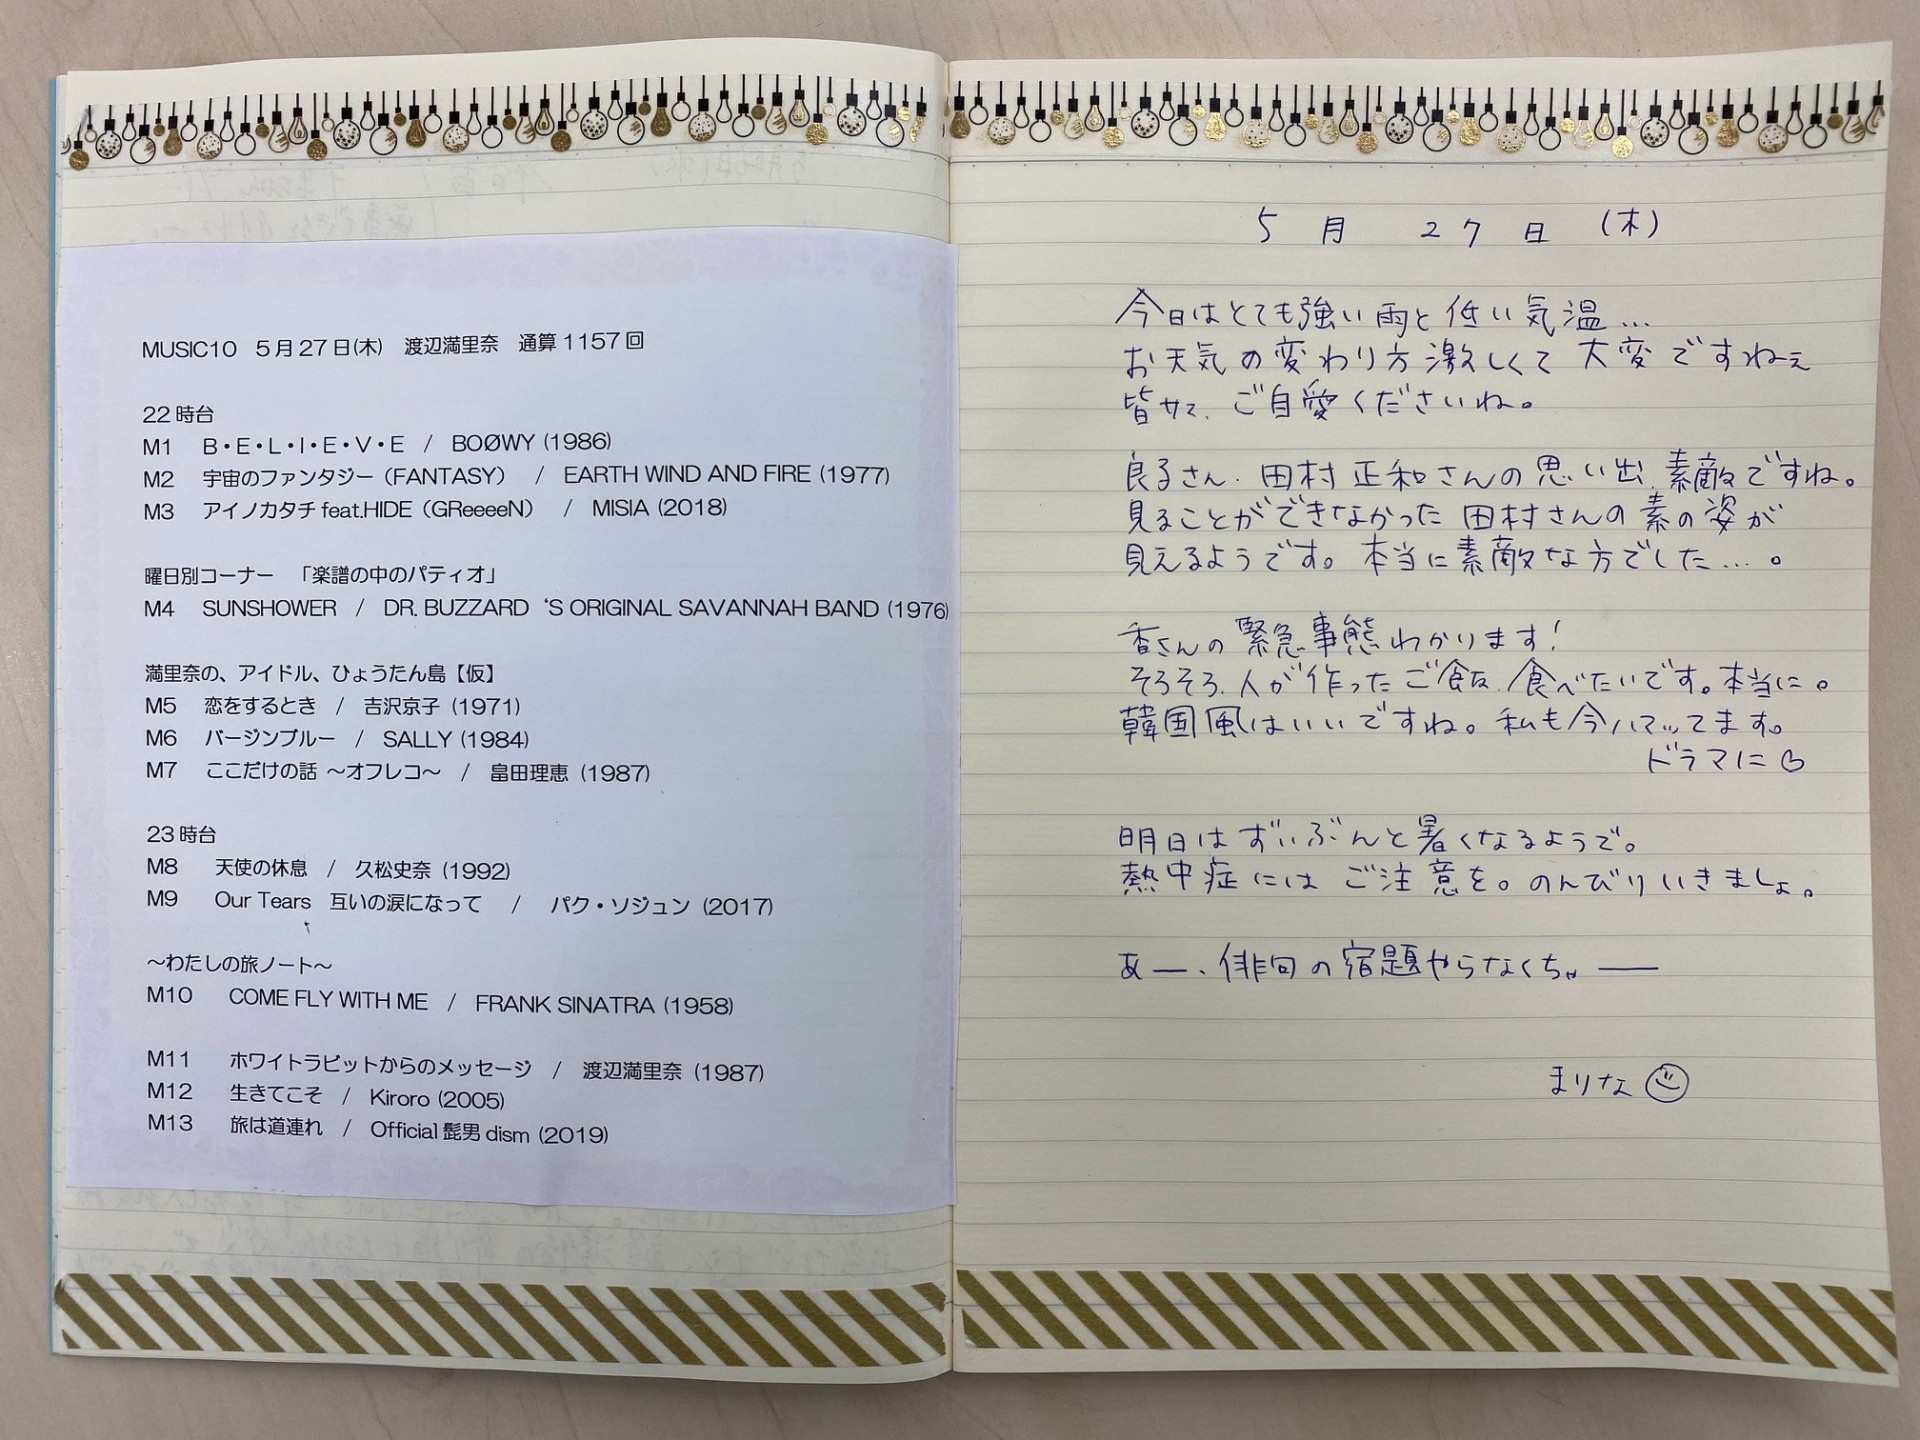 MUSIC10 5月27日(木) 渡辺満里奈 通算1157回
22時台
M1 B・E・L・I・E・V・E / BOØWY (1986)
M2 宇宙のファンタジー（FANTASY） / EARTH WIND AND FIRE (1977)
M3 アイノカタチ feat.HIDE（GReeeeN） / MISIA (2018)
曜日別コーナー 「楽譜の中のパティオ」
M4 SUNSHOWER / DR. BUZZARD ‘S ORIGINAL SAVANNAH BAND (1976)
満里奈の、アイドル、ひょうたん島【仮】
M5 恋をするとき / 吉沢京子 (1971)
M6 バージンブルー / SALLY (1984)
M7 ここだけの話 ～オフレコ～ / 畠田理恵 (1987)
23時台
M8 天使の休息 / 久松史奈 (1992)
M9 Our Tears 互いの涙になって / パク・ソジュン (2017)
～わたしの旅ノート～
M10 COME FLY WITH ME / FRANK SINATRA (1958)
M11 ホワイトラビットからのメッセージ / 渡辺満里奈 (1987)
M12 生きてこそ / Kiroro (2005)
M13 旅は道連れ / Official髭男dism (2019)
5月 27日 (木)
今日はとても強い雨と低い気温…
お天気の変わり方激しくて大変ですねぇ
皆サマ、ご自愛くださいね。
良子さん、田村正和さんの思い出、素敵ですね。
見ることができなかった田村さんの素の姿が
見えるようです。本当に素敵な方でした…。
香さんの緊急事態わかります！
そろそろ、人が作ったご飯、食べたいです。本当に。
韓国風はいいですね。私も今ハマッてます。
ドラマに♡
明日はずいぶんと暑くなるようで。
熱中症にはご注意を。のんびりいきましょ。
あー、俳句の宿題やらなくちゃー
まりな